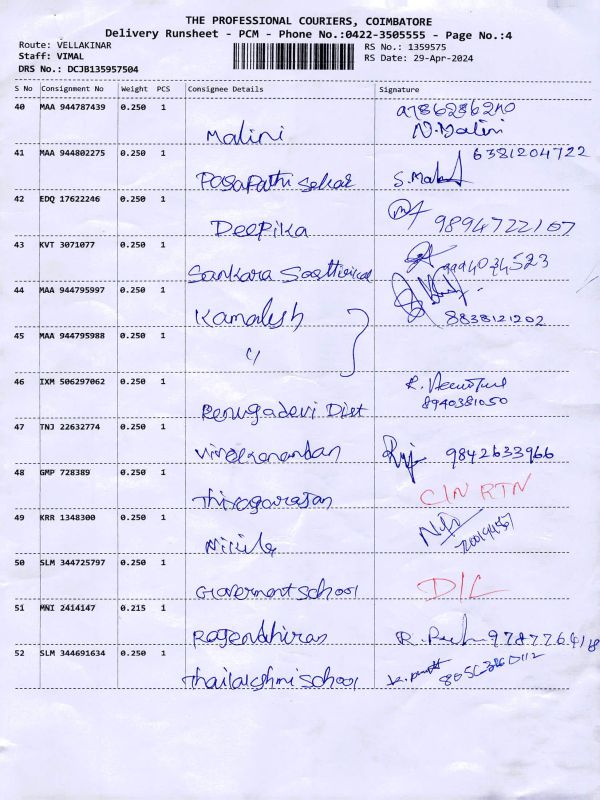 THE PROFESSIONAL COURIERS, COIMBATORE
Delivery Runsheet - PCM - Phone No.:0422-3505555 - Page No.:4
Route: VELLAKINAR RS No.: 1359575
Staff: VIMAL RS Date: 29-Apr-2024
DRS No.: DCJB135957504
S No Consignment No Weight PCS Consignee Details Signature
40 MAA 944787439 0.250 1
Malini N.Malini
41 MAA 944802275 0.250 1 6381204722
Pasapathi Sekar
42 EDQ 17622246 0.250 1
Deepika 9894722107
43 KVT 3071077 0.250 1
Sankara 9994034523
44 MAA 944795997 0.250 1
Kamalesh 8838121202
45 MAA 944795988 0.250 1
"
46 IXM 506297062 0.250 1
Renugadevi Dist 8940381050
47 TNJ 22632774 0.250 1
9842633966
48 GMP 728389 0.250 1
Thiyagarajan CIN RTN
49 KRR 1348300 0.250 1
Nikila
50 SLM 344725797 0.250 1
Government School D/L
51 MNI 2414147 0.215 1
Rajendhiran
52 SLM 344691634 0.250 1
Thailakshmi School